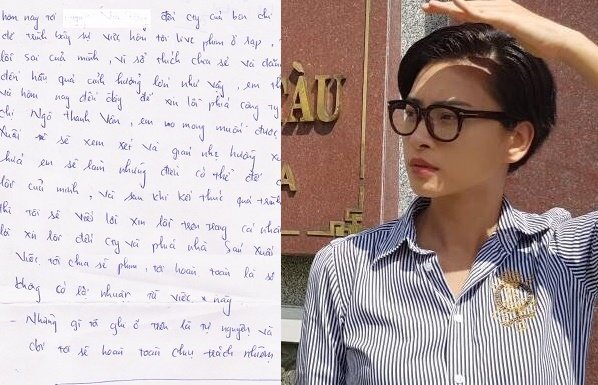 hôm nay tôi đến cty của bên chị
để trình bày sự việc hôm tôi live phim ở rạp,
lỗi sai của mình, vì sở thích chia sẻ và dẫn
đến hậu quả ảnh hưởng lớn như vậy, em
và hôm nay đến đây để xin lỗi phía công ty
chị Ngô Thanh Vân, em mong muốn được
Xuất sẽ xem xét và giảm nhẹ hướng
em sẽ làm những điều có thể để
lỗi của mình, và sau khi kết thúc quá
thì tôi sẽ viết lời xin lỗi trên trang cá nhân
lời xin lỗi đến cty và phía nhà Sản Xuất
Việc tôi chia sẻ phim, tôi hoàn toàn là
không có lợi nhuận từ việc này
- Những gì tôi ghi ở trên là tự nguyện và
tôi sẽ hoàn toàn chịu trách nhiệm
CẦU
A